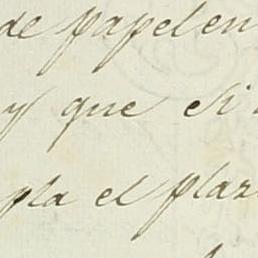 de papel en
y que si
pla el plaz